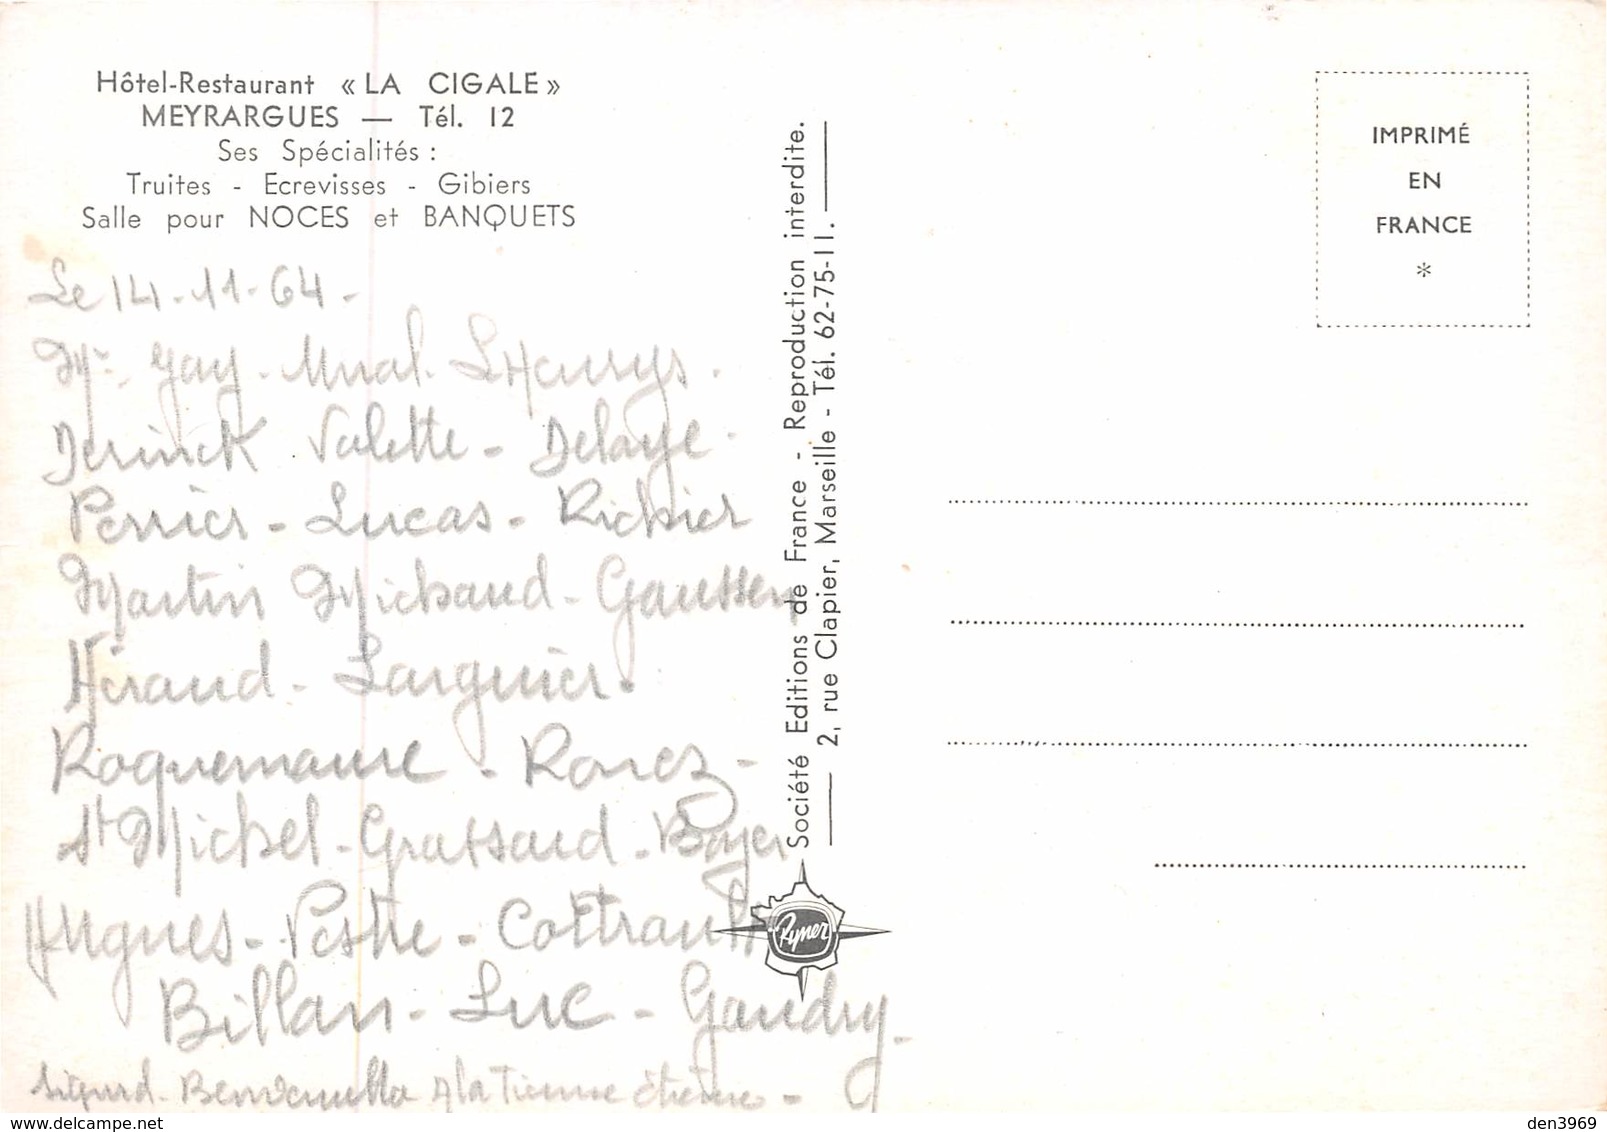 Hôtel-Restaurant « LA CIGALE »
MEYRARGUES — Tél. 12
Ses Spécialités :
Truites - Ecrevisses - Gibiers
Salle pour NOCES et BANQUETS
Le 14-11-64-
Mr. Gay - Mural.
Valette - Delaye -
Perrier - Lucas - Richier
Martin Michaud - Gaussen
Héraud - Larguier.
Roquemaure - Rouez -
St Michel - Grassaud - Boyer
Hugues - Vestre - Cottrault
Billan - Luc - Gaudry -
Benvenutto Etienne -
Société Editions de France - Reproduction interdite.
2, rue Clapier, Marseille - Tél. 62-75-11.
Ryner
IMPRIMÉ
EN
FRANCE
*
delcampe.net
den3969